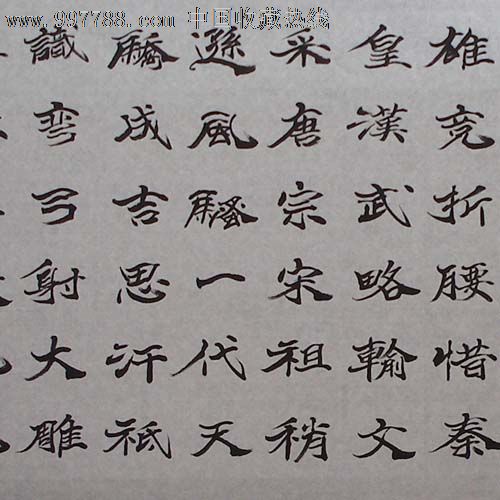 www.997788.com 中国收藏热线
雄竞折腰惜秦
皇漢武略輸文
采唐宗宋祖稍
遜風騷一代天
驕成吉思汗祇
識弯弓射大雕